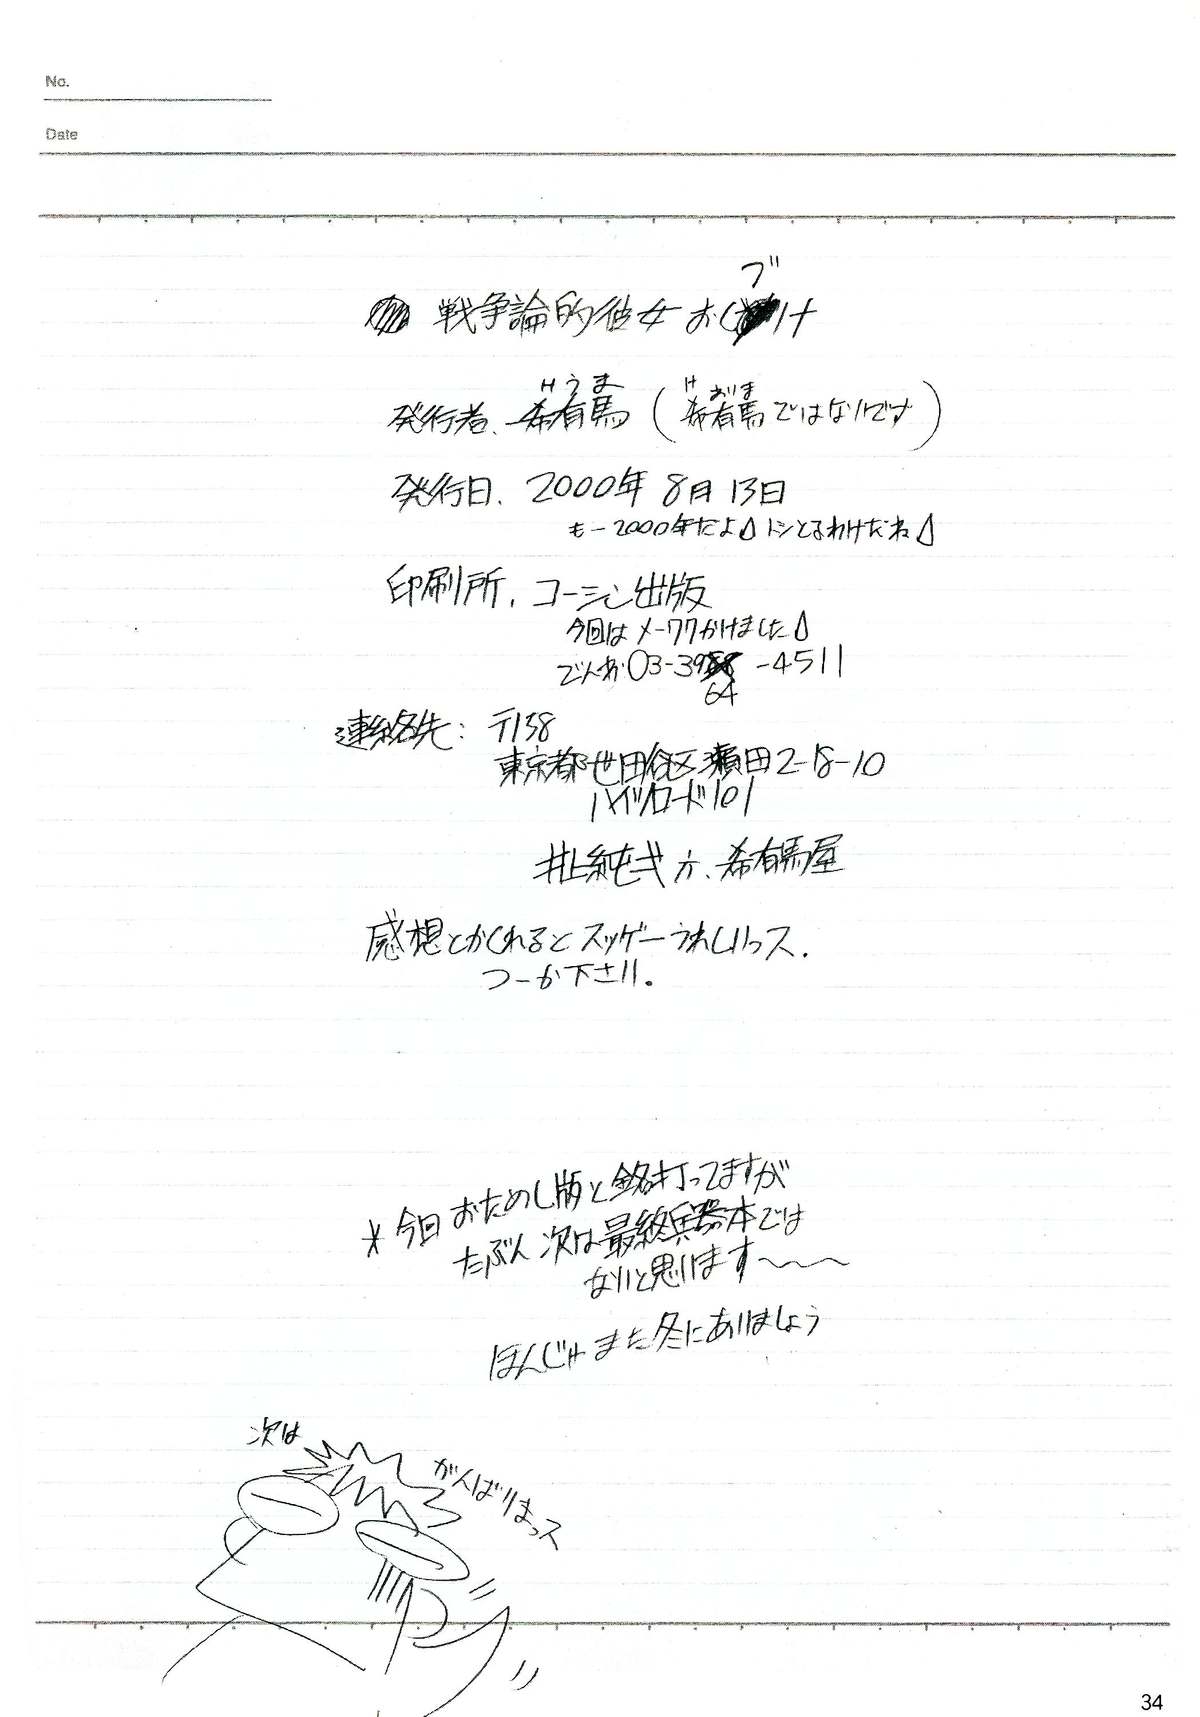 No.
Date
ブ
戦争論的彼女 おしけ
Hうま
発行者、希有馬(希有馬ではないです)
け ありま
発行日、2000年 8月 13日
もー2000年だよ トシとるわけだね
印刷所、コーシン出版
今回は メーワクかけました
でんわ 03-39 -4511
64
連絡先: 〒158
東京都世田谷区瀬田2-18-10
ハイツロード101
井上純弌 方、希有馬屋
感想とかくれると スッゲーうれしいっス.
つーか下さい。
*今回 おためし版と銘打ってますが
たぶん 次は 最終兵器本では
ないと思います〜〜〜
ほんじゃ また 冬にあいましょう
次は
がんばりまっス
34